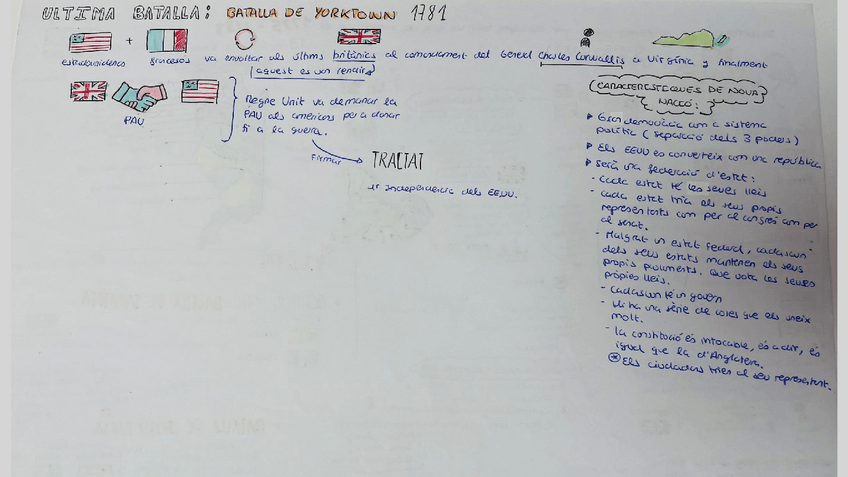 ULTIMA BATALLA: BATALLA DE YORKTOWN 1781
+
estadounidencs francesos va envoltar als últims britànics al comandament del General Charles Cornwallis a Virgínia y finalment
(aquest es van rendir)
PAU
Regne Unit va demanar la
PAU als americans per a donar
fi a la guerra.
Firmar
TRACTAT
independència dels EEUU.
CARACTERÍSTIQUES DE NOVA
NACCÓ:
Gran democràcia com a sistema
política (separació dels 3 poders)
Els EEUU es converteix com una república
Serà una federació d'estat:
- Cada estat té les seves lleis
- Cada estat tria els seus propis
representants com per al congrés com per
al senat.
- Malgrat un estat federal, cadascun
dels seus estats mantenen els seus
propis parlaments. Que vota les seves
pròpies lleis.
- Cadascun té un govern
- Hi ha una sèrie de coses que els uneix
molt.
- La constitució és intocable, és a dir, és
igual que la d'Anglaterra.
* Els ciudadans trien al seu representant.